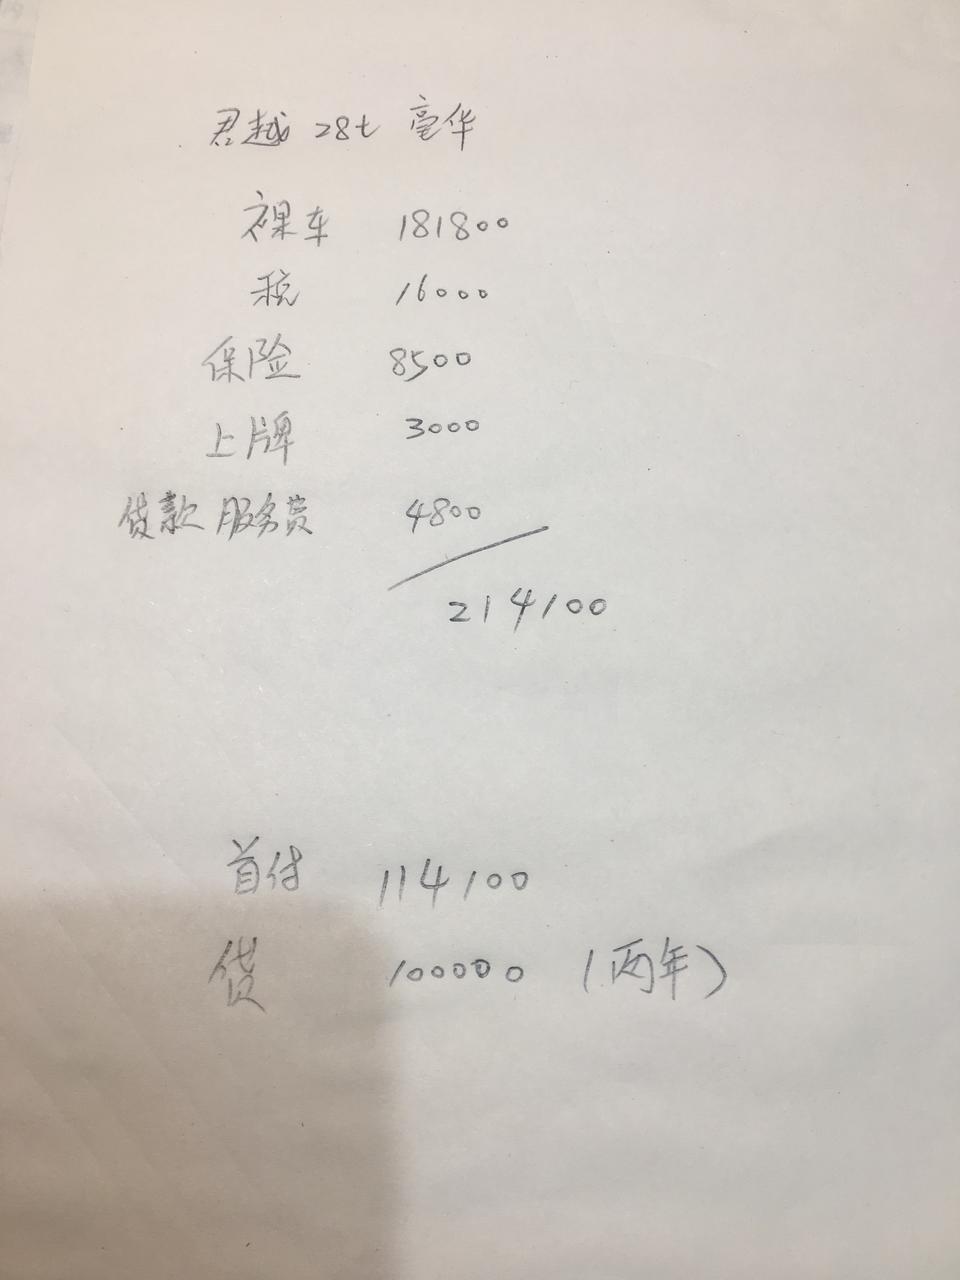 君越 28t 豪华
裸车 181800
税 16000
保险 8500
上牌 3000
贷款服务费 4800
214100
首付 114100
贷 100000 (两年)